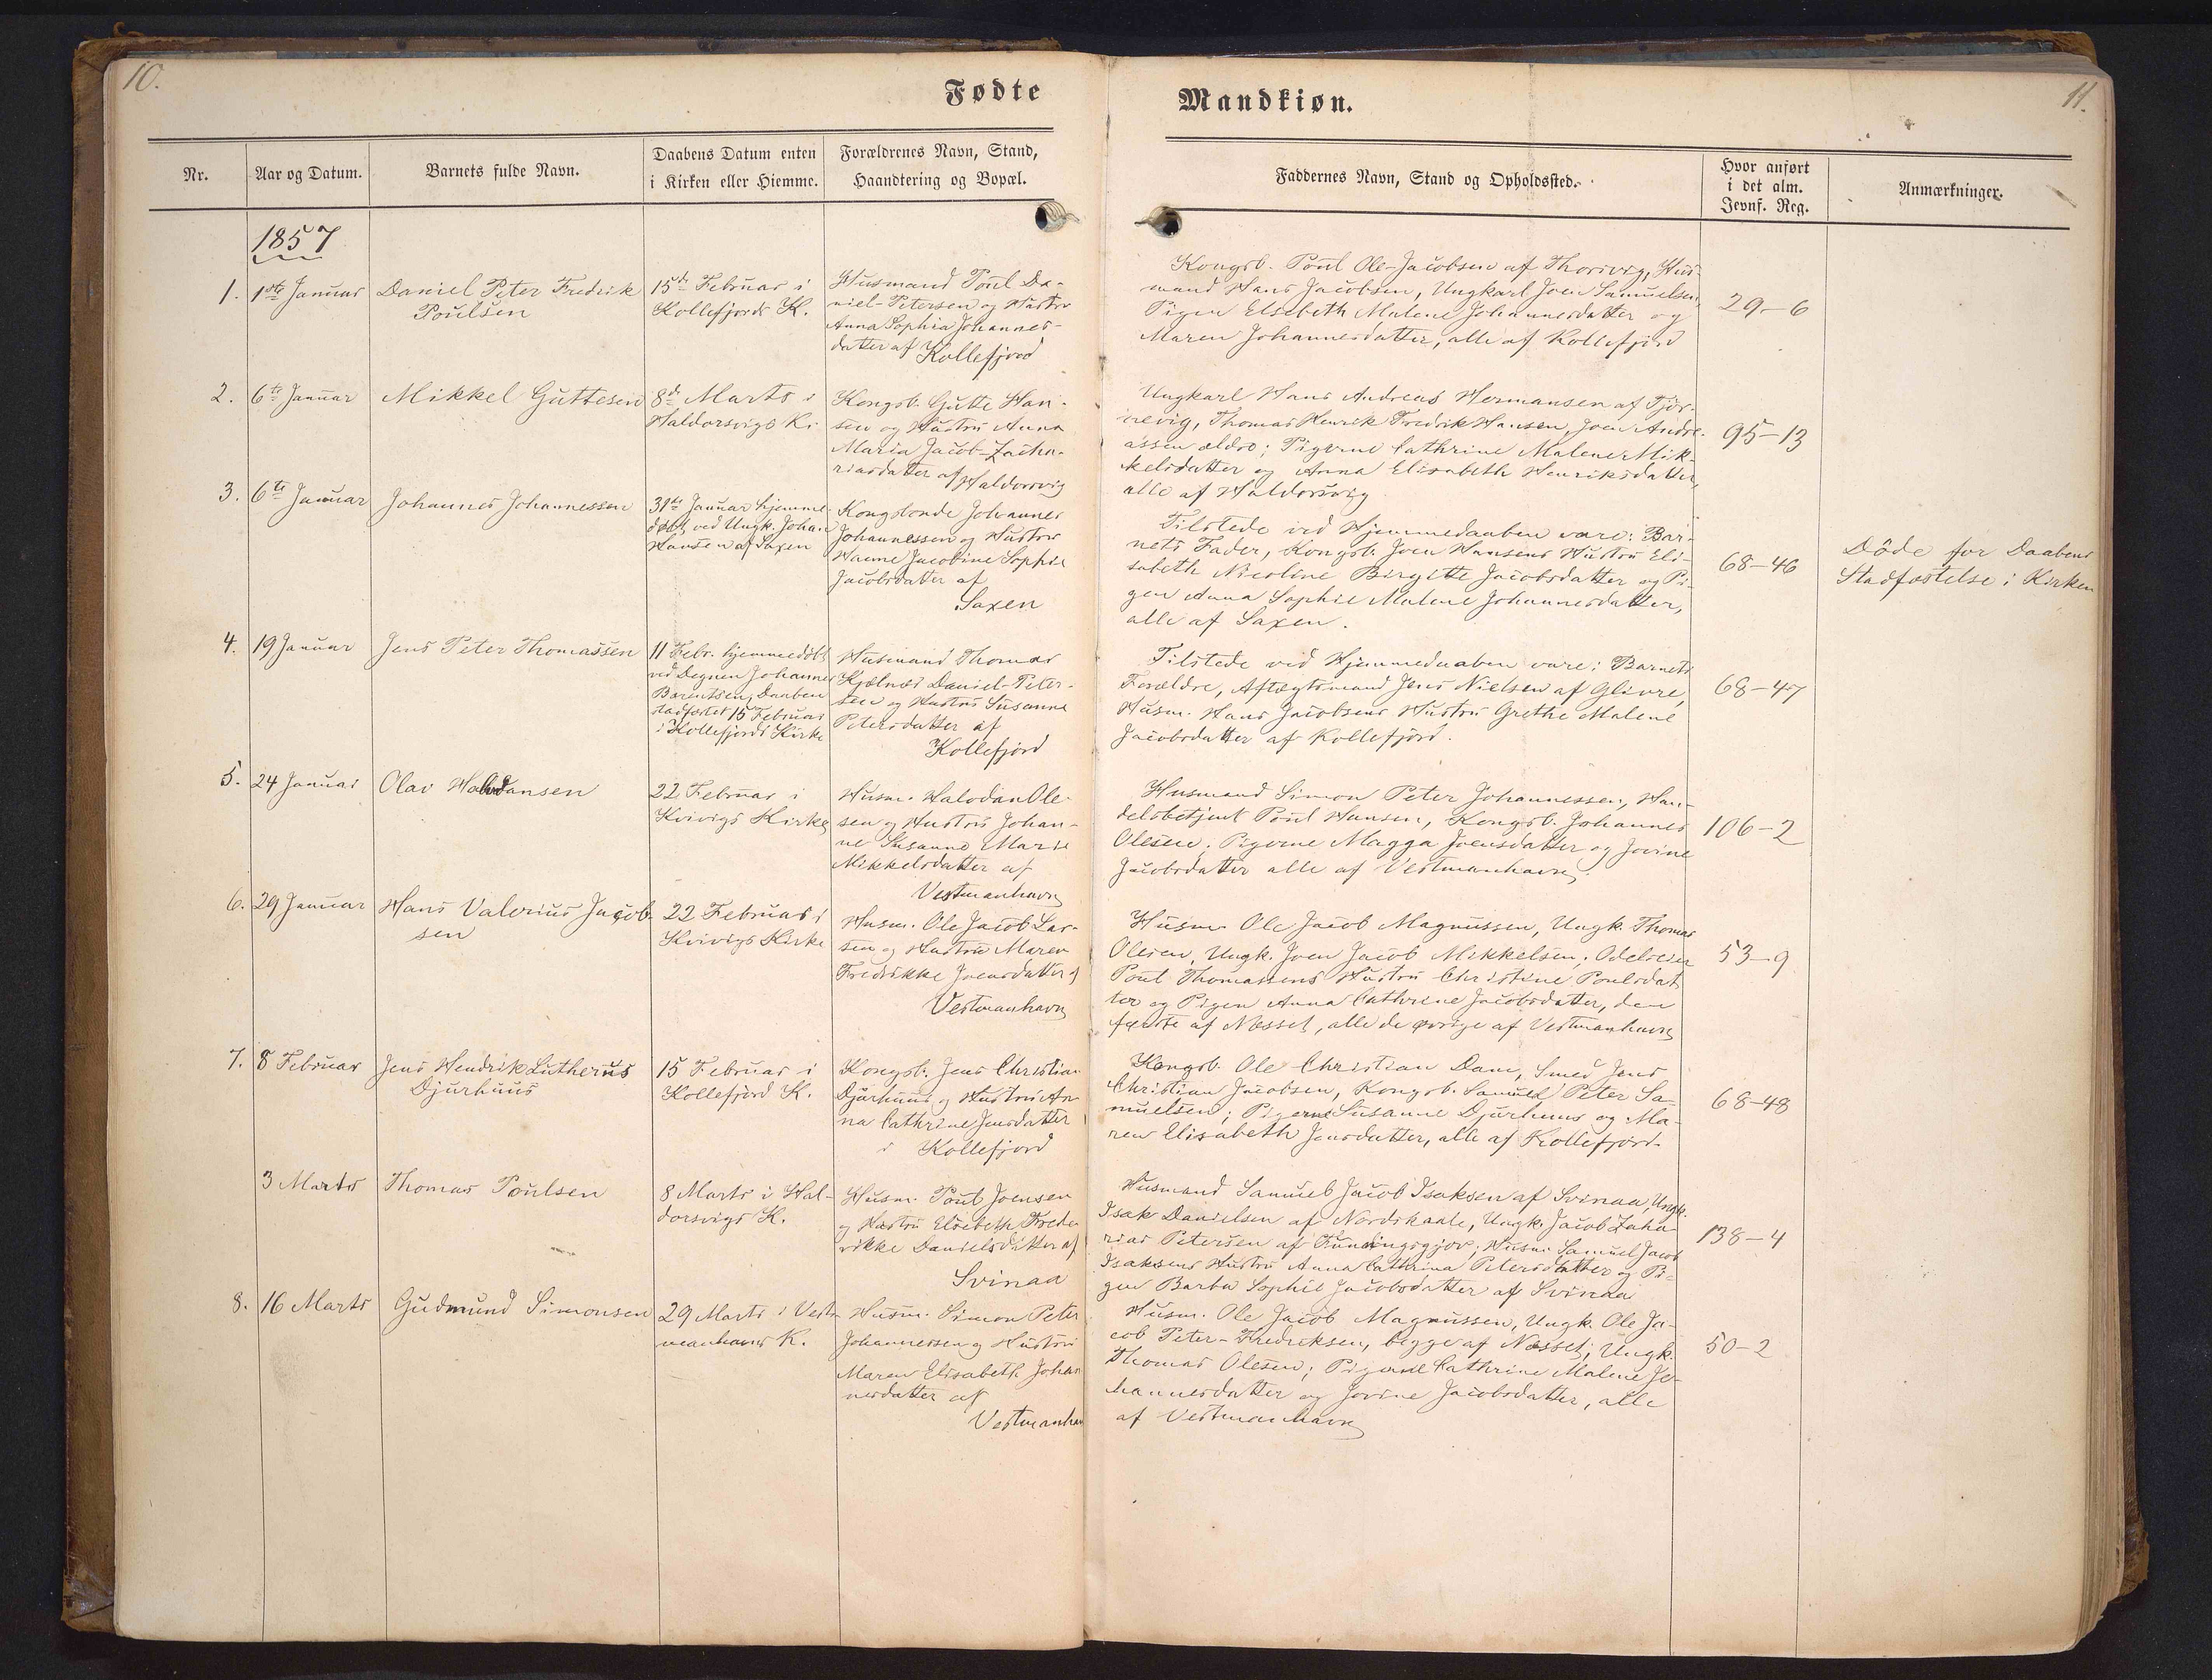 10.
Fødte
Nr.
Aar og Datum.
Barnets fulde Navn.
Daabens Datum enten
i Kirken eller Hiemme.
Forældrenes Navn, Stand,
Haandtering og Bopæl.
1857
1.
1ste Januar
Daniel Peter Fredrik
Poulsen
15de Februar i
Kollefjords K.
Husmand Poul Da-
niel-Petersen og Hustru
Anna Sophia Johannes-
datter af Kollefjord
2.
6te Januar
Mikkel Guttesen
8de Marts i
Haldorsvigs K.
Kongsb. Gutte Han-
sen og Hustru Anna
Maria Jacob-Zacha-
riasdatter af Haldorsvig
3.
6te Januar
Johannes Johannessen
31te Januar hjemme-
døbt ved Ungk. Johan
Hansen af Saxen
Kongsbonde Johannes
Johannessen og Hustru
Hanne Jacobine Sophie
Jacobsdatter af
Saxen
4.
19 Januar
Jens Peter Thomassen
11 Febr. hjemmedøbt
ved Degnen Johannes
Barentsen, Daaben
stadfæstet 15 Februar
i Kollefjords Kirke
Husmand Thomas
Kjølnæs Daniel-Peter-
sen og Hustru Susanne
Petersdatter af
Kollefjord
5.
24 Januar
Olav Halvdansen
22 Februar i
Kvivigs Kirke
Husm. Halvdan Ole-
sen og Hustru Johan-
ne Susanne Marie
Mikkelsdatter af
Vestmanhavn
6.
29 Januar
Hans Valerius Jacob-
sen
22 Februar i
Kvivigs Kirke
Husm. Ole Jacob Lar-
sen og Hustru Maren
Fredrikke Joensdatter af
Vestmanhavn
7.
8 Februar
Jens Hendrik Lutherus
Djurhuus
15 Februar i
Kollefjord K.
Kongsb. Jens Christian
Djurhuus og Hustru An-
na Cathrine Jensdatter
i Kollefjord
3 Marts
Thomas Poulsen
8 Marts i Hal-
dorsvigs K.
Husm. Poul Joensen
og Hustru Elsebeth Frede-
rikke Danielsdatter af
Svinaa
8.
16 Marts
Gudmund Simonsen
29 Marts i Vest-
manhavns K.
Husm. Simon Peter
Johannessen og Hustru
Maren Elisabeth Johan
nesdatter af
Vestmanhav
Mandkiøn.
11.
Faddernes Navn, Stand og Opholdssted.
Hvor anført
i det alm.
Jevnf. Reg.
Anmærkninger.
Kongsb. Poul Ole-Jacobsen af Thorsvig, Hus-
mand Hans Jacobsen, Ungkarl Joen Samuelsen,
Pigen Elsebeth Malene Johannesdatter og
Maren Johannesdatter, alle af Kollefjord
29-6
Ungkarl Hans Andreas Hermansen af Tjør-
nevig, Thomas Henrik Fredrik Hansen, Joen Andre-
assen ældre; Pigerne Cathrine Malene Mik-
kelsdatter og Anna Elisabeth Henriksdatter,
alle af Haldorsvig
95-13
Tilstede ved Hjemmedaaben vare: Bar-
nets Fader, Kongsb. Joen Hansens Hustru Eli-
sabeth Nicoline Birgitte Jacobsdatter og Pi-
gen Anna Sophie Malene Johannesdatter,
alle af Saxen.
68-46
Døde før Daabens
Stadfæstelse i Kirken
Tilstede ved Hjemmedaaben vare: Barnets
Forældre, Aftægtsmand Jens Nielsen af Glivre,
Husm. Hans Jacobsens Hustru Grethe Malene
Jacobsdatter af Kollefjord.
68-47
Husmand Simon Peter Johannessen, Han-
delsbetjent Poul Hansen, Kongsb. Johannes
Olesen. Pigerne Magga Joensdatter og Jovine
Jacobsdatter alle af Vestmanhavn.
106-2
Husm. Ole Jacob Magnussen, Ungk. Thomas
Olesen, Ungk. Joen Jacob Mikkelsen; Odelseier
Poul Thomassens Hustru Christine Poulsdat
ter og Pigen Anna Cathrine Jacobsdatter, den
første af Næsset, alle de øvrige af Vestmanhavn
53-9
Kongsb. Ole Christian Dam, Smed Jens
Christian Jacobsen, Kongsb. Samuel Peter Sa-
muelsen; Pigerne Susanne Djurhuus og Ma-
ren Elisabeth Jensdatter, alle af Kollefjord.
68-48
Husmand Samuel Jacob Isaksen af Svinaa, Ungk.
Isak Danielsen af Nordskaale, Ungk. Jacob Zaha-
rias Petersen af Funningsgjov; Husm. Samuel Jacob
Isaksens Hustru Anna Cathrina Petersdatter og Pi-
gen Barba Sophie Jacobsdatter af Svinaa
138-4
Husm. Ole Jacob Magnussen, Ungk. Ole Ja-
cob Peter-Fredriksen, begge af Næsset; Ungk.
Thomas Olesen; Pigerne Cathrine Malene Jo-
hannesdatter og Jovine Jacobsdatter, alle
af Vestmanhavn
50-2